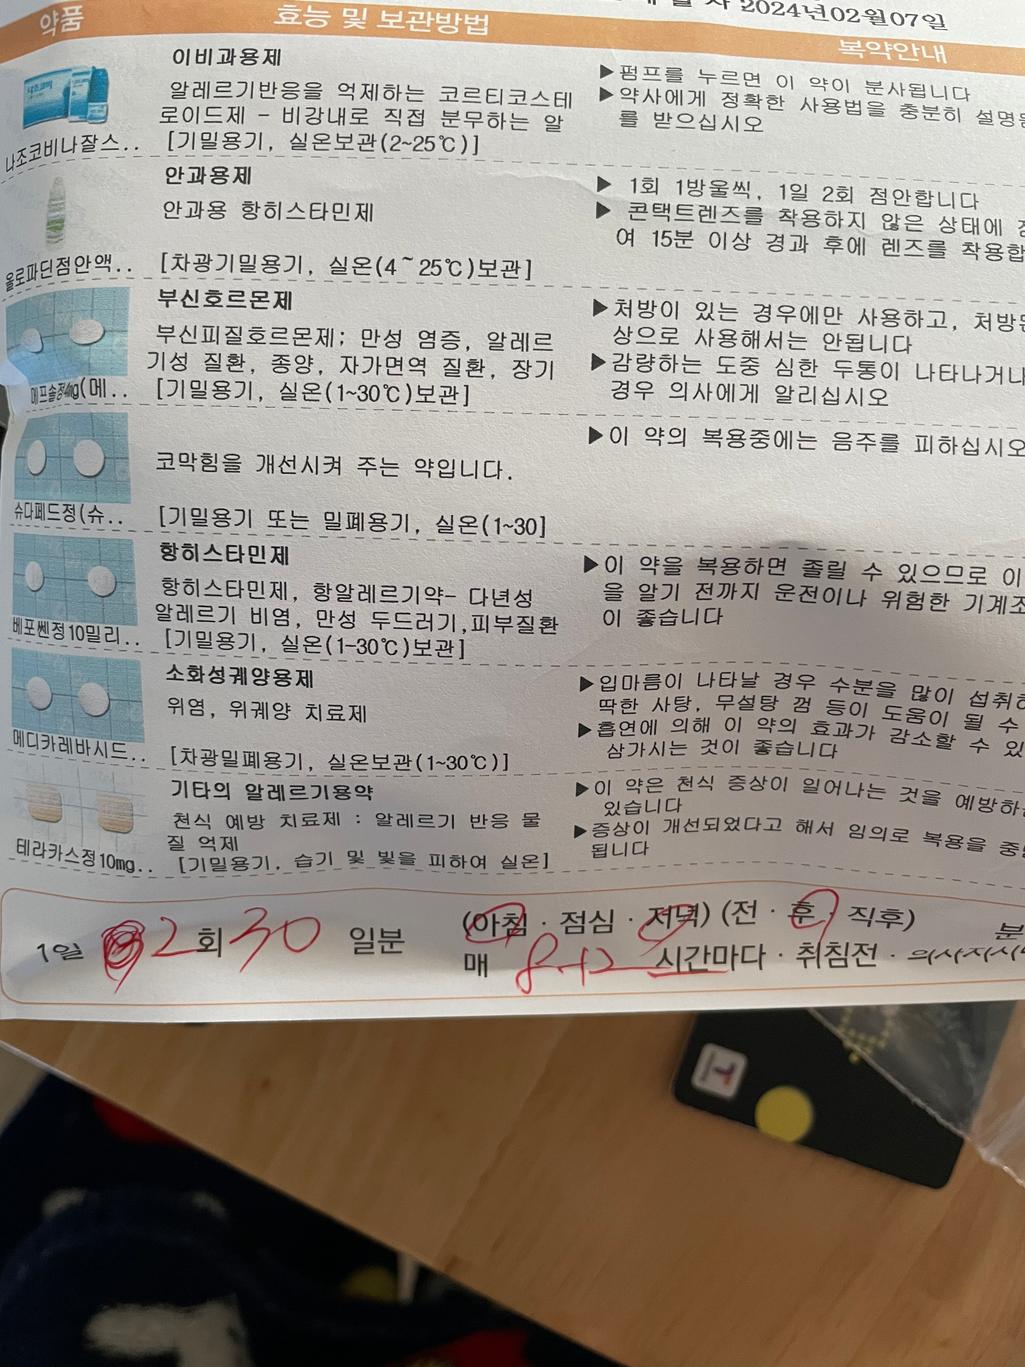 2024년02월07일
약품 효능 및 보관방법 복약안내
이비과용제
알레르기반응을 억제하는 코르티코스테
로이드제 - 비강내로 직접 분무하는 알
[기밀용기, 실온보관(2~25℃)]
나조코비나잘스..
▶펌프를 누르면 이 약이 분사됩니다
▶약사에게 정확한 사용법을 충분히 설명
를 받으십시오
안과용제
안과용 항히스타민제
[차광기밀용기, 실온(4~25℃)보관]
올로파딘점안액..
▶ 1회 1방울씩, 1일 2회 점안합니다
▶ 콘택트렌즈를 착용하지 않은 상태에
여 15분 이상 경과 후에 렌즈를 착용합
부신호르몬제
부신피질호르몬제; 만성 염증, 알레르
기성 질환, 종양, 자가면역 질환, 장기
[기밀용기, 실온(1~30℃)보관]
메프솔정4mg(메..
▶처방이 있는 경우에만 사용하고, 처방된
상으로 사용해서는 안됩니다
▶감량하는 도중 심한 두통이 나타나거나
경우 의사에게 알리십시오
코막힘을 개선시켜 주는 약입니다.
[기밀용기 또는 밀폐용기, 실온(1~30]
슈다페드정(슈..
▶이 약의 복용중에는 음주를 피하십시오
항히스타민제
항히스타민제, 항알레르기약- 다년성
알레르기 비염, 만성 두드러기,피부질환
[기밀용기, 실온(1-30℃)보관]
베포쎈정10밀리..
▶이 약을 복용하면 졸릴 수 있으므로 이
을 알기 전까지 운전이나 위험한 기계조
이 좋습니다
소화성궤양용제
위염, 위궤양 치료제
[차광밀폐용기, 실온보관(1~30℃)]
메디카레바시드..
▶입마름이 나타날 경우 수분을 많이 섭취하
딱한 사탕, 무설탕 껌 등이 도움이 될 수
▶흡연에 의해 이 약의 효과가 감소할 수 있
삼가시는 것이 좋습니다
기타의 알레르기용약
천식 예방 치료제 : 알레르기 반응 물
질 억제
[기밀용기, 습기 및 빛을 피하여 실온]
테라카스정10mg..
▶이 약은 천식 증상이 일어나는 것을 예방하는
있습니다
▶증상이 개선되었다고 해서 임의로 복용을 중단
됩니다
1일 2회 30 일분 (아침 · 점심 · 저녁) (전 · 후 · 직후) 분
매 8-12 시간마다 · 취침전 · 의사지시
T